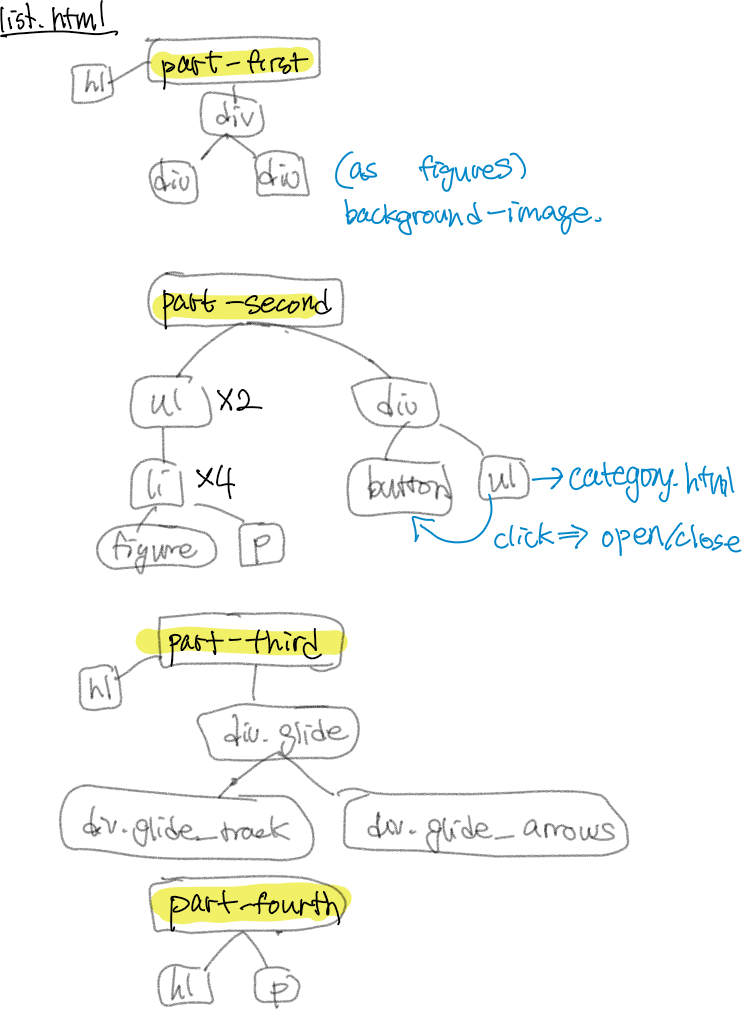 list.html
part-first
h1
div
div
div
(as figures)
background-image.
part-second
ul
x2
div
li
x4
button
ul
→ category.html
figure
p
click ⇒ open/close
part-third
h1
div.glide
div.glide_track
div.glide_arrows
part-fourth
h1
p